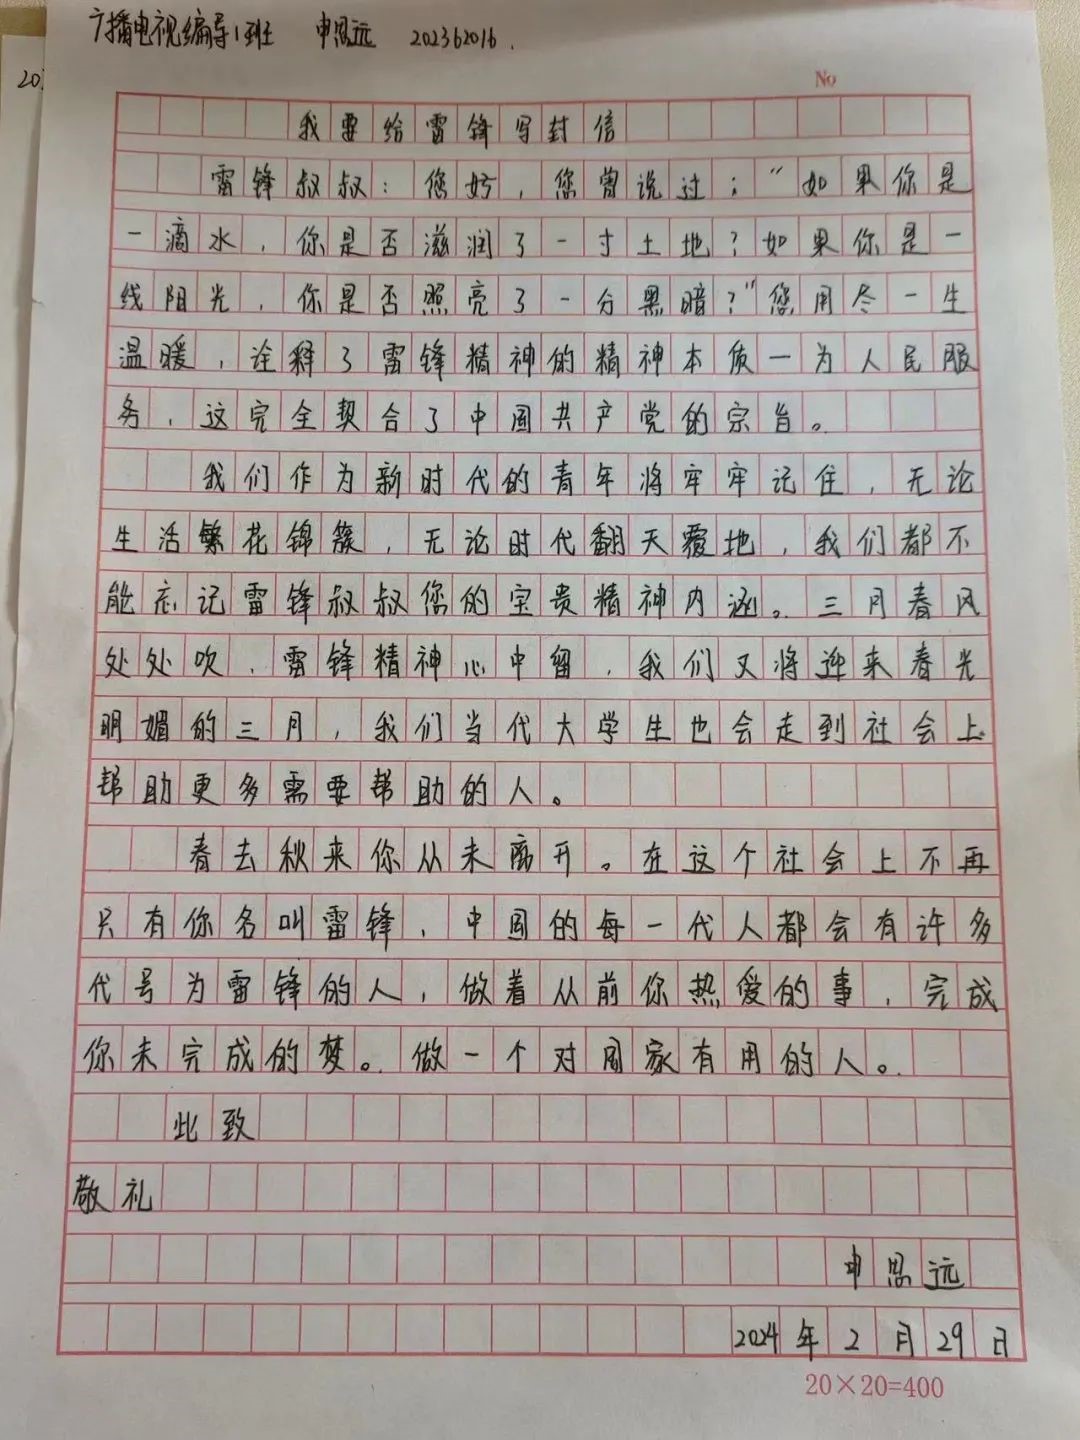 广播电视编导1班 申思远 202362016.
No
202
我要给雷锋写封信
雷锋叔叔：您好，您曾说过；“如果你是
一滴水，你是否滋润了一寸土地？如果你是一
线阳光，你是否照亮了一分黑暗？”您用尽一生
温暖，诠释了雷锋精神的精神本质一为人民服
务，这完全契合了中国共产党的宗旨。
我们作为新时代的青年将牢牢记住，无论
生活繁花锦簇，无论时代翻天覆地，我们都不
能忘记雷锋叔叔您的宝贵精神内涵。三月春风
处处吹，雷锋精神心中留，我们又将迎来春光
明媚的三月，我们当代大学生也会走到社会上
帮助更多需要帮助的人。
春去秋来你从未离开。在这个社会上不再
只有你名叫雷锋，中国的每一代人都会有许多
代号为雷锋的人，做着从前你热爱的事，完成
你未完成的梦。做一个对国家有用的人。
此致
敬礼
申思远
2024年2月29日
20×20=400